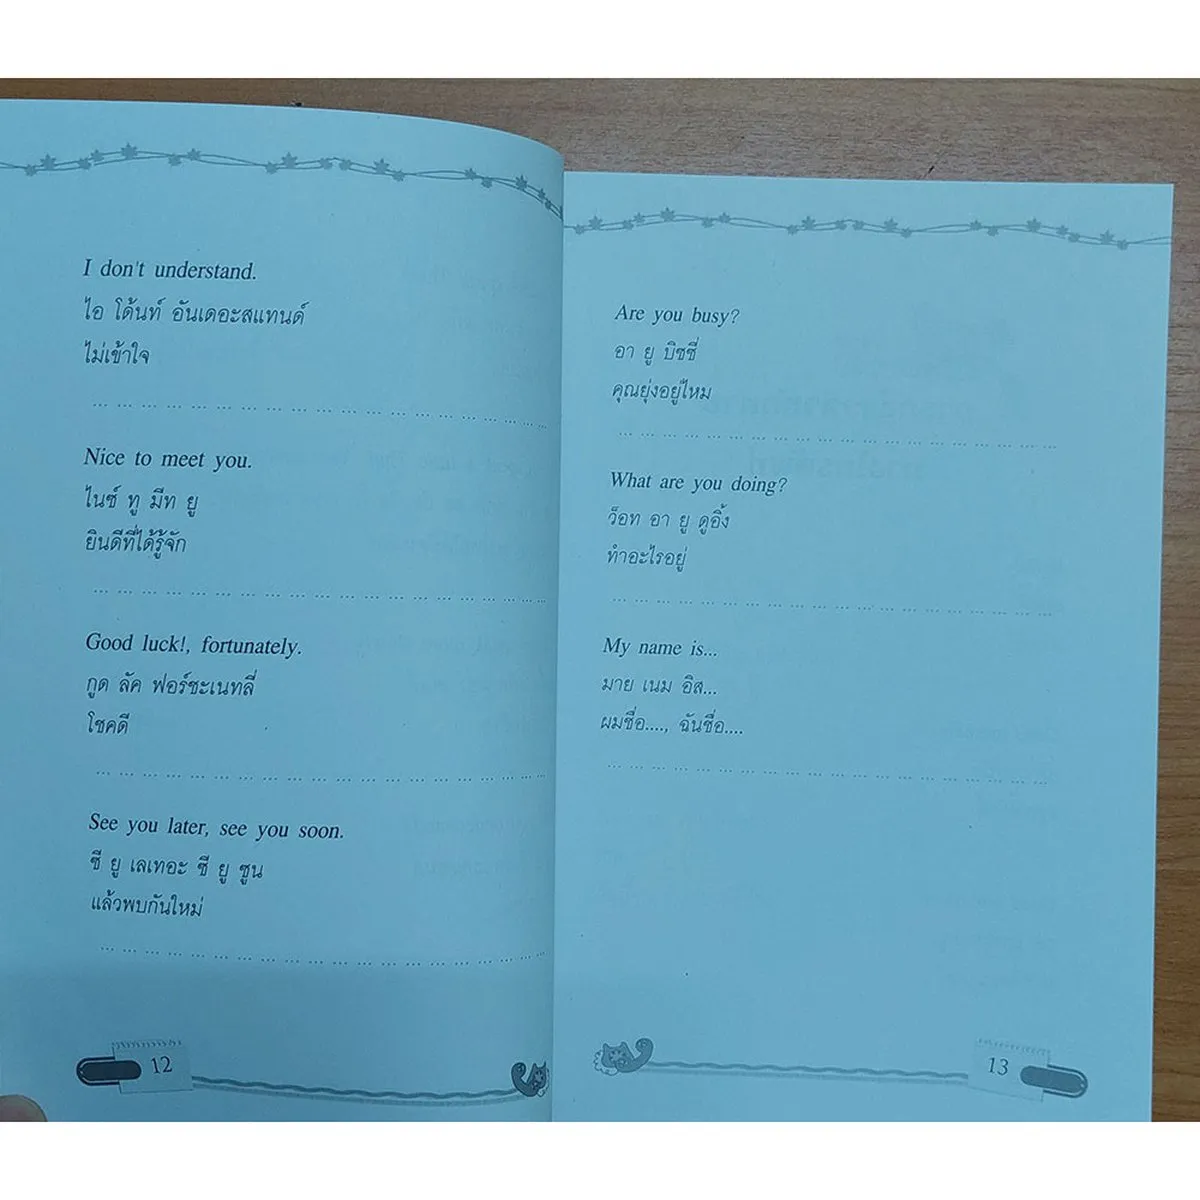 I don't understand.
ไอ โด้นท์ อันเดอะสแทนด์
ไม่เข้าใจ
Nice to meet you.
ไนซ์ ทู มีท ยู
ยินดีที่ได้รู้จัก
Good luck!, fortunately.
กูด ลัค ฟอร์ชะเนทลี่
โชคดี
See you later, see you soon.
ซี ยู เลเทอะ ซี ยู ซูน
แล้วพบกันใหม่
12
Are you busy?
อา ยู บิซซี่
คุณยุ่งอยู่ไหม
What are you doing?
ว็อท อา ยู ดูอิ้ง
ทำอะไรอยู่
My name is...
มาย เนม อิส...
ผมชื่อ...., ฉันชื่อ....
13